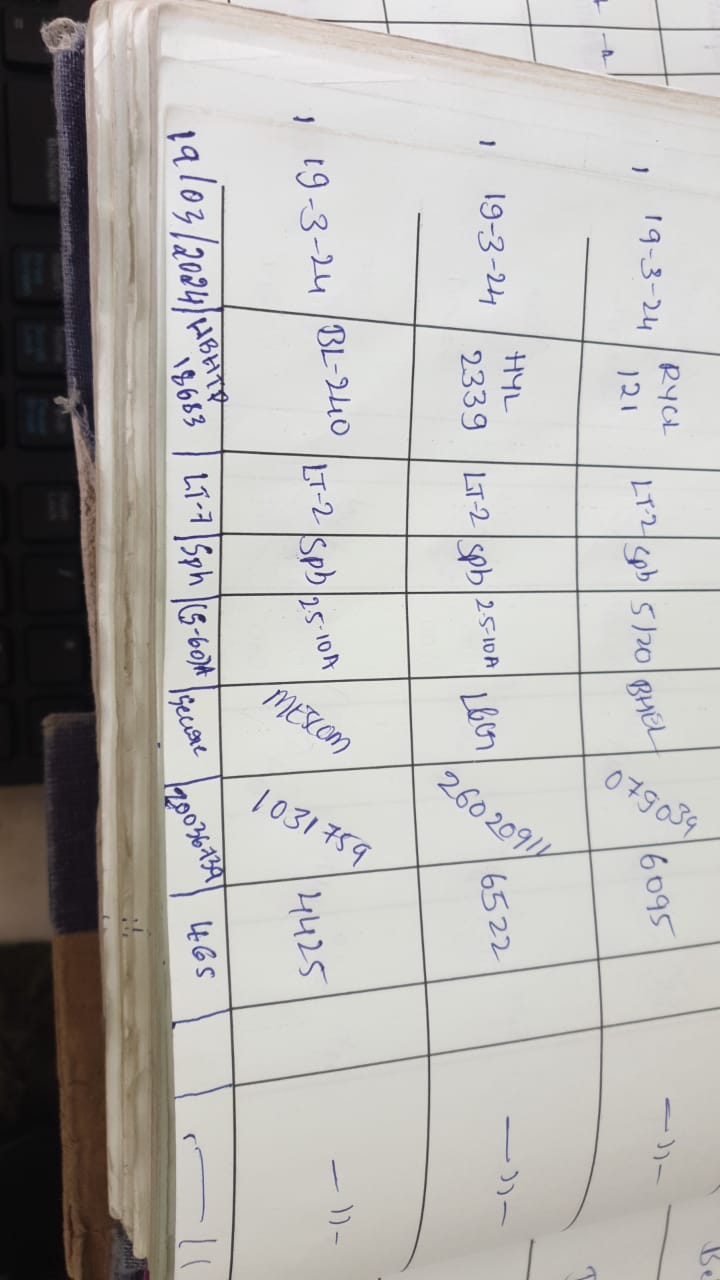 19-3-24 RYCL 121 LT-2 Sph 5/20 BHEL 079039 6095 —〃—
19-3-24 HYL 2339 LT-2 Sph 2.5-10A L&T 26020911 6522 —〃—
19-3-24 BL-240 LT-2 Sph 2.5-10A MESCOM 1031759 4425 —〃—
19/03/2024 18683 LT-7 Sph (5-60)A 465